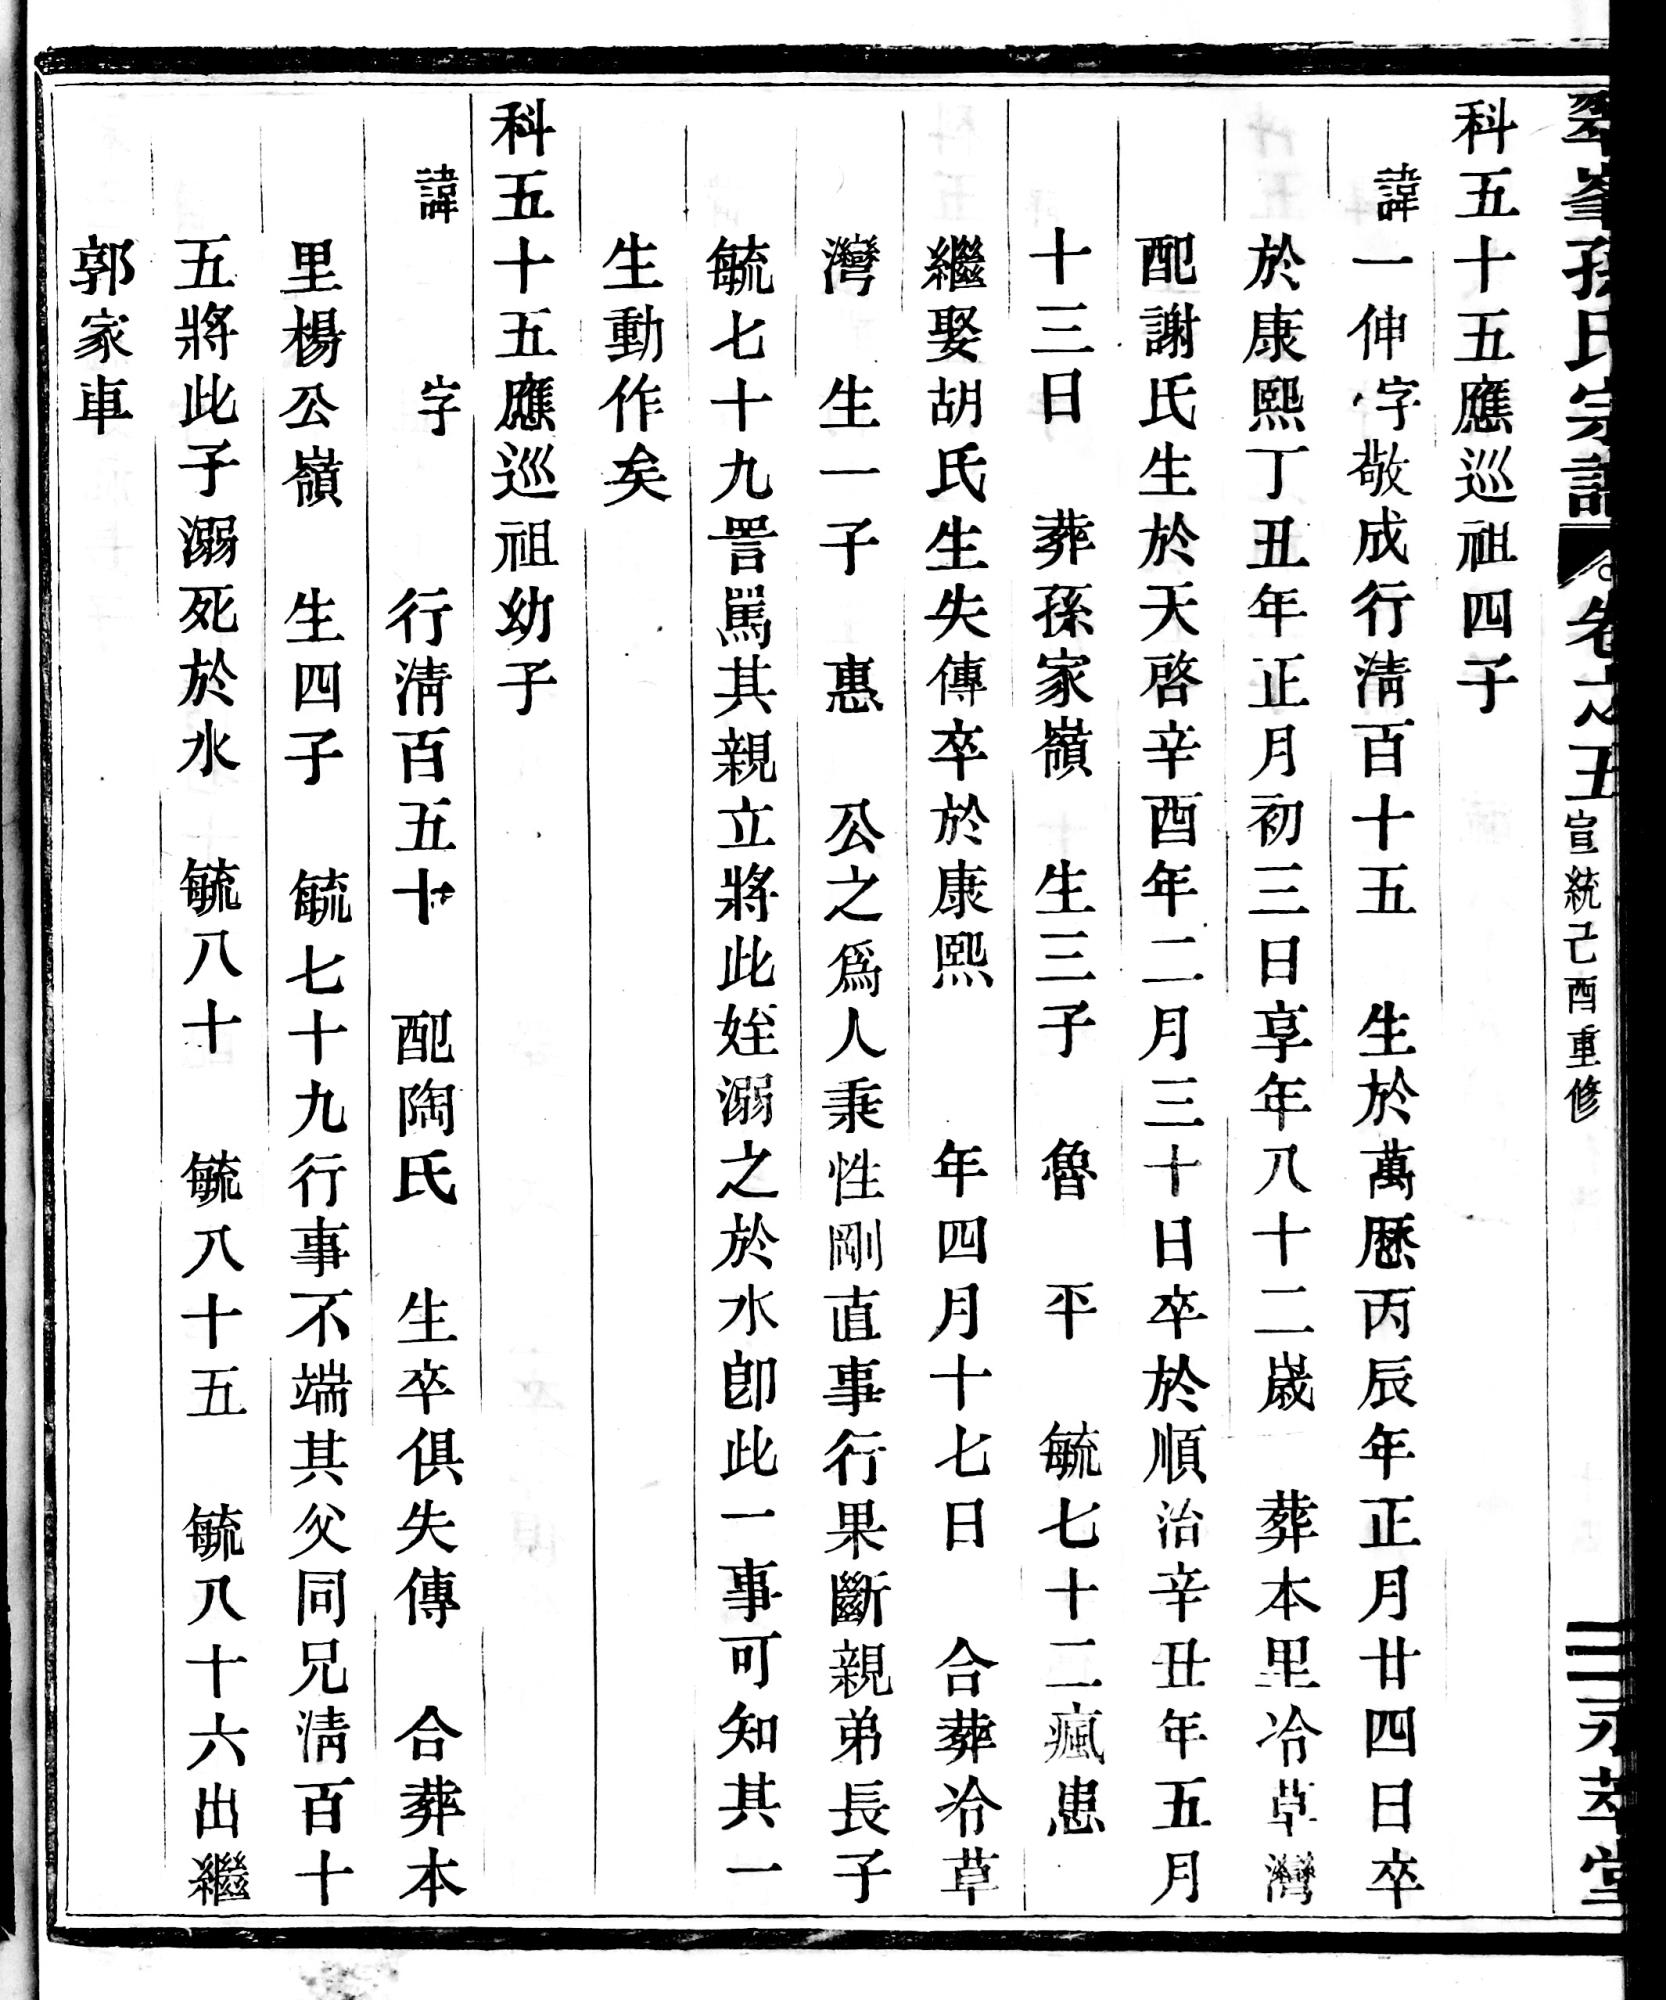 孫氏宗譜 卷之五 宣統己酉重修 二 永萃堂
科五十五應巡祖四子
諱一伸字敬成行淸百十五 生於萬歷丙辰年正月廿四日卒
於康熙丁丑年正月初三日享年八十二歲 葬本里冷草灣
配謝氏生於天啓辛酉年二月三十日卒於順治辛丑年五月
十三日 葬孫家嶺 生三子 魯 平 毓七十二瘋患
繼娶胡氏生失傳卒於康熙 年四月十七日 合葬冷草
灣 生一子 惠 公之爲人秉性剛直事行果斷親弟長子
毓七十九詈駡其親立將此姪溺之於水卽此一事可知其一
生動作矣
科五十五應巡祖幼子
諱 字 行淸百五十 配陶氏 生卒俱失傳 合葬本
里楊公嶺 生四子 毓七十九行事不端其父同兄淸百十
五將此子溺死於水 毓八十 毓八十五 毓八十六出繼
郭家車